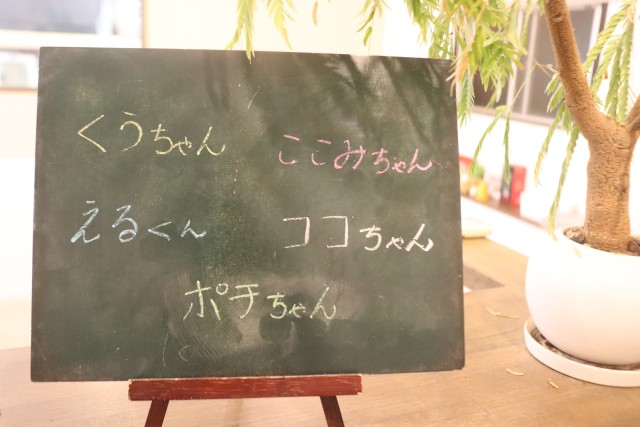 くうちゃん ここみちゃん
えるくん ココちゃん
ポチちゃん